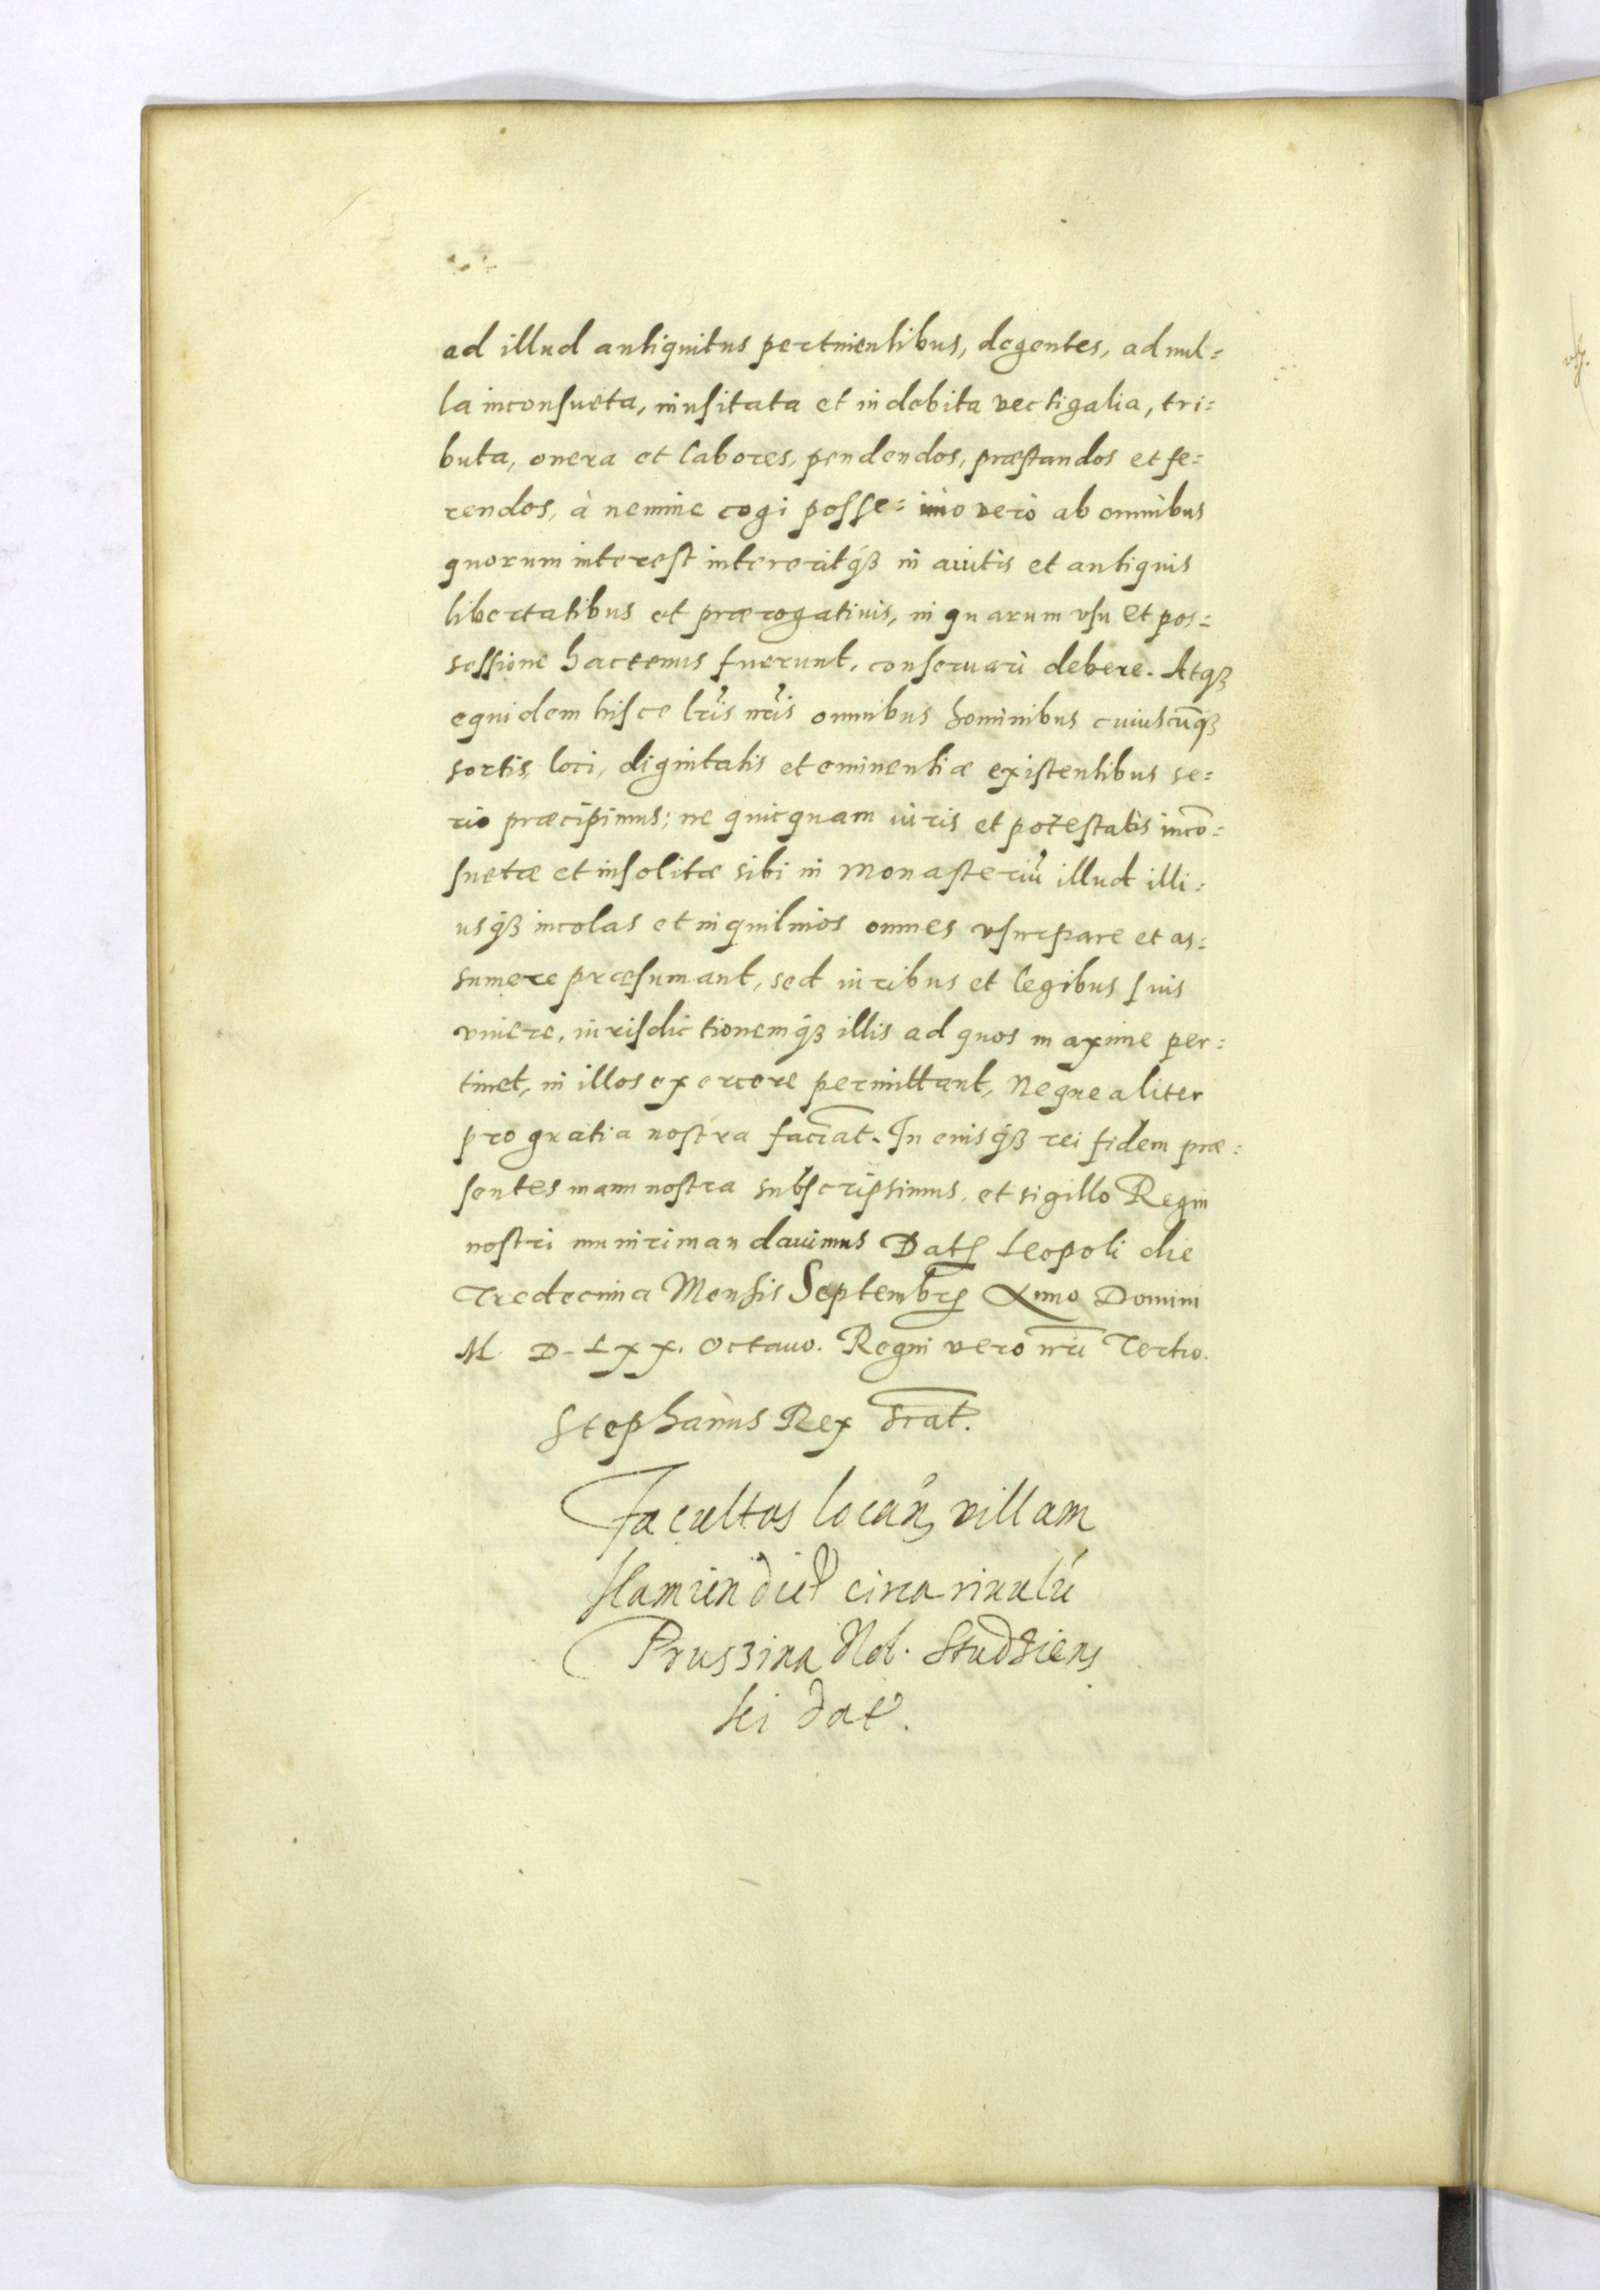 ad illud antiquitus pertinentibus, degentes, ad nul=
la inconsueta, inusitata et indebita vectigalia, tri=
buta, onera et labores, pendendos, præstandos et fe=
rendos, à nemine cogi posse: imo verò ab omnibus
quorum interest intereritqʒ in auitis et antiquis
libertatibus et prærogatiuis, in quarum vsu et pos=
sessione hactenus fuerunt, conseruari debere. Atqʒ
equidem hisce lr̃is nr̃is omnibus hominibus cuiuscũqʒ
sortis, loci, dignitatis et eminentiæ existentibus se=
rio præcipimus; ne quicquam iuris et potestatis incõ=
suetæ et insolitæ sibi in Monasteriũ illud illi=
usqʒ incolas et inquilinos omnes vsurpare et as=
sumere præsumant, sed iuribus et legibus suis
viuere, iurisdictionemqʒ illis ad quos maxime per=
tinet, in illos exercere permittant, Neque aliter
pro gratia nostra faciãt. In cuiusqʒ rei fidem præ=
sentes manu nostra subscripsimus, et sigillo Regni
nostri muniri mandauimus Datꝭ Leopoli die
Tredecima Mensis Septembrꝭ Anno Domini
M. D. LXX. Octauo. Regni vero nr̃i Tertio.
Stephanus Rex
Facultas locañ villam
circa riuulũ
Pruszina Nob. Studziens
sci dat̃.